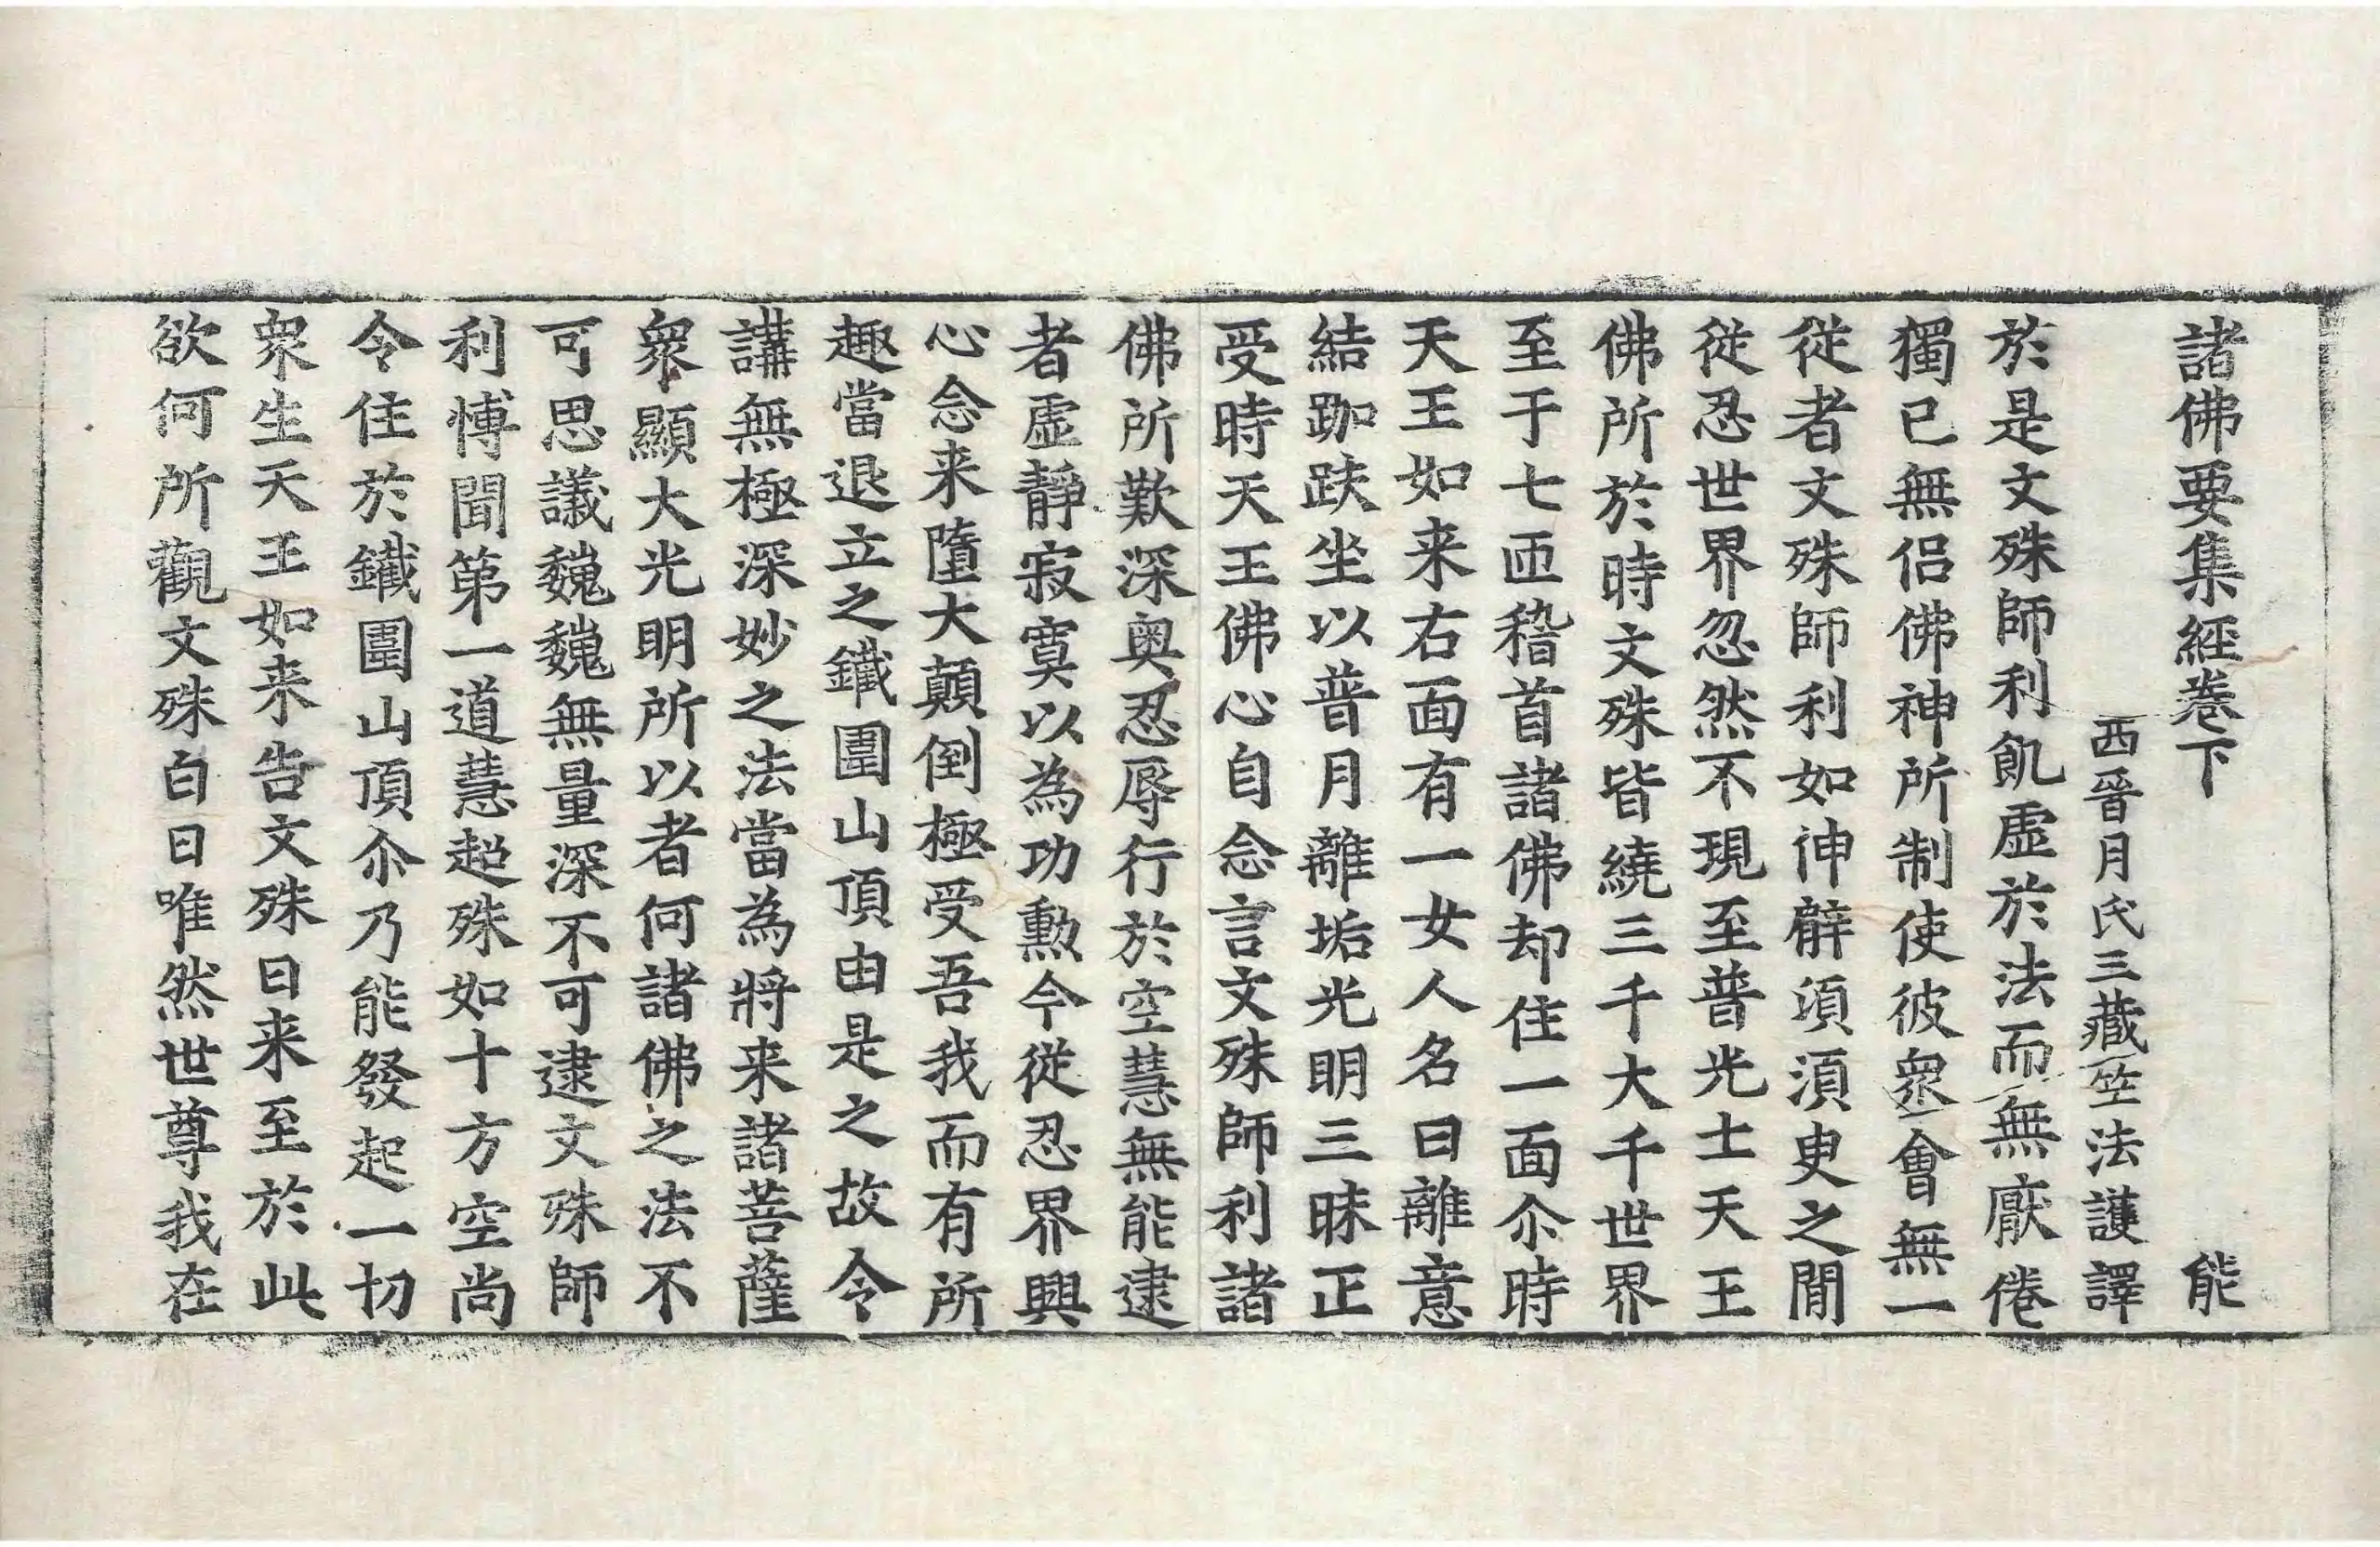 諸佛要集經卷下　能
西晉月氏三藏竺法護譯
於是文殊師利飢虛於法而無厭倦
獨已無侣佛神所制使彼衆會無一
從者文殊師利如伸臂須須臾之間
從忍世界忽然不現至普光士天王
佛所於時文殊皆繞三千大千世界
至于七匝稽首諸佛却住一面尒時
天王如来右面有一女人名曰離意
結跏趺坐以普月離垢光明三昧正
受時天王佛心自念言文殊師利諸
佛所歎深奥忍辱行於空慧無能逮
者虛靜寂寞以為功勲今從忍界興
心念来墮大顛倒極受吾我而有所
趣當退立之鐵圍山頂由是之故令
講無極深妙之法當為將来諸菩薩
衆顯大光明所以者何諸佛之法不
可思議巍巍無量深不可逮文殊師
利博聞第一道慧超殊如十方空尚
令住於鐵圍山頂尒乃能發起一切
衆生天王如来告文殊曰来至於此
欲何所觀文殊白曰唯然世尊我在